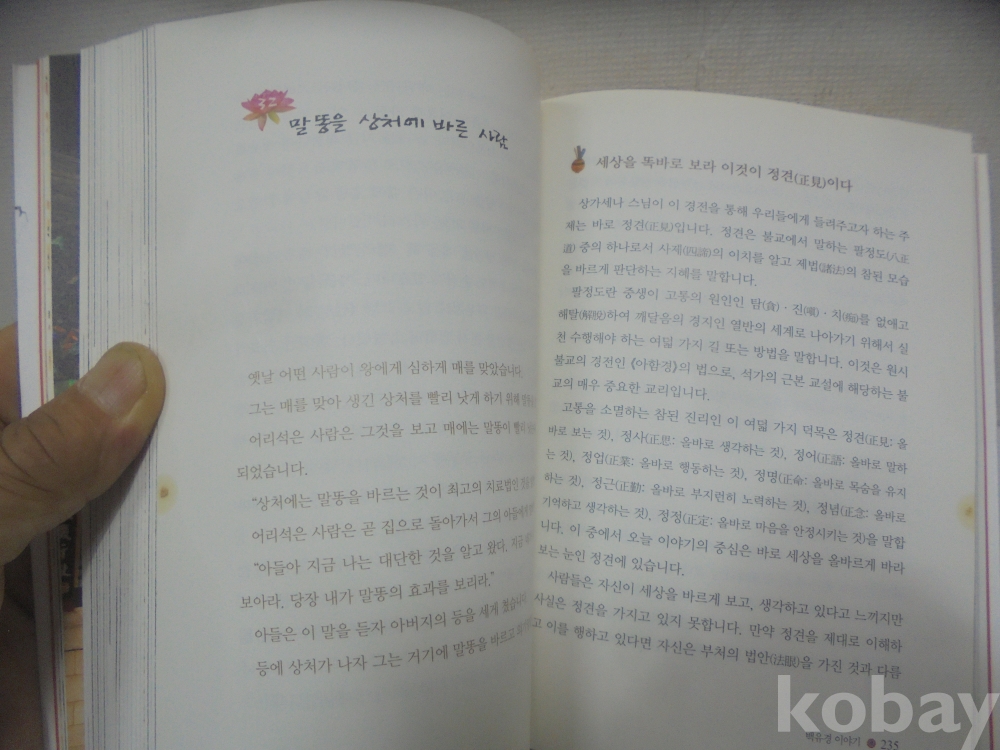 32
말똥을 상처에 바른 사람
옛날 어떤 사람이 왕에게 심하게 매를 맞았습니다.
그는 매를 맞아 생긴 상처를 빨리 낫게 하기 위해
어리석은 사람은 그것을 보고 매에는 말똥이
되었습니다.
“상처에는 말똥을 바르는 것이 최고의 치료법인
어리석은 사람은 곧 집으로 돌아가서 그의 아들에게
“아들아 지금 나는 대단한 것을 알고 왔다. 지금
보아라. 당장 내가 말똥의 효과를 보리라.”
아들은 이 말을 듣자 아버지의 등을 세게 쳤습니다
등에 상처가 나자 그는 거기에 말똥을 바르고
세상을 똑바로 보라 이것이 정견(正見)이다
상가세나 스님이 이 경전을 통해 우리들에게 들려주고자 하는 주
제는 바로 정견(正見)입니다. 정견은 불교에서 말하는 팔정도(八正
道) 중의 하나로서 사제(四諦)의 이치를 알고 제법(諸法)의 참된 모습
을 바르게 판단하는 지혜를 말합니다.
팔정도란 중생이 고통의 원인인 탐(貪)·진(嗔)·치(痴)를 없애고
해탈(解脫)하여 깨달음의 경지인 열반의 세계로 나아가기 위해서 실
천 수행해야 하는 여덟 가지 길 또는 방법을 말합니다. 이것은 원시
불교의 경전인 《아함경》의 법으로, 석가의 근본 교설에 해당하는 불
교의 매우 중요한 교리입니다.
고통을 소멸하는 참된 진리인 이 여덟 가지 덕목은 정견(正見: 올
바로 보는 것), 정사(正思: 올바로 생각하는 것), 정어(正語: 올바로 말하
는 것), 정업(正業: 올바로 행동하는 것), 정명(正命: 올바로 목숨을 유지
하는 것), 정근(正勤: 올바로 부지런히 노력하는 것), 정념(正念: 올바로
기억하고 생각하는 것), 정정(正定: 올바로 마음을 안정시키는 것)을 말합
니다. 이 중에서 오늘 이야기의 중심은 바로 세상을 올바르게 바라
보는 눈인 정견에 있습니다.
사람들은 자신이 세상을 바르게 보고, 생각하고 있다고 느끼지만
사실은 정견을 가지고 있지 못합니다. 만약 정견을 제대로 이해하
고 이를 행하고 있다면 자신은 부처의 법안(法眼)을 가진 것과 다를
백유경 이야기 235
kobay